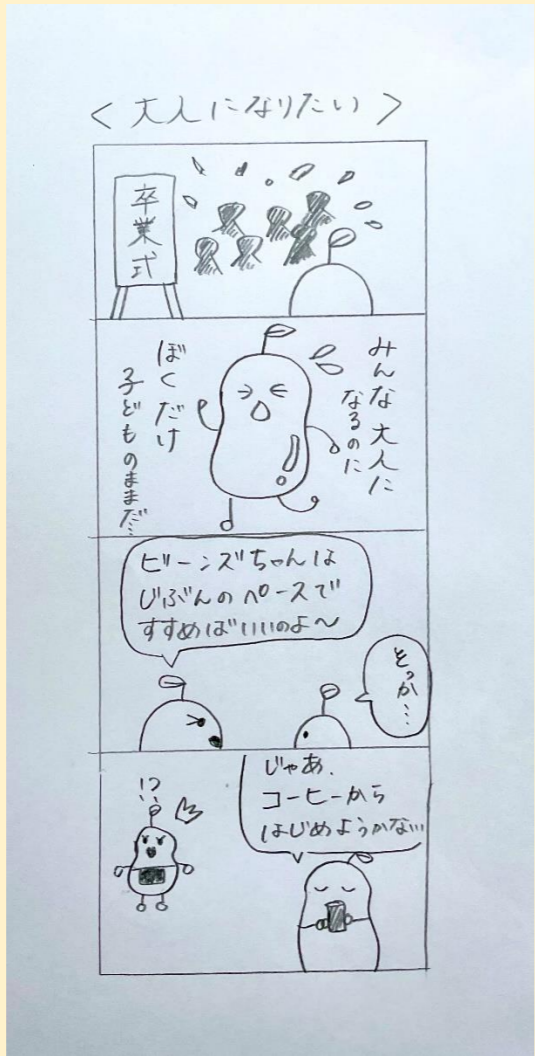 <大人になりたい>
卒業式
みんな大人に
なるのに
ぼくだけ
子どものままだ…
ビーンズちゃんは
じぶんのペースで
すすめばいいのよ〜
そっか…
じゃあ、
コーヒーから
はじめようかな…
!?